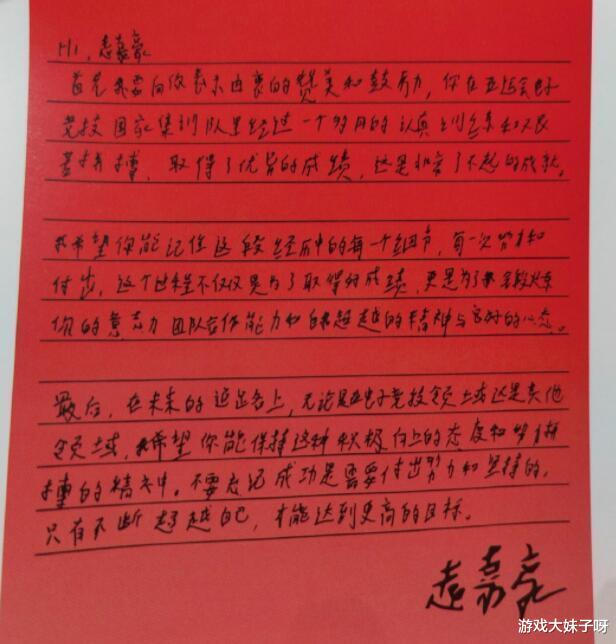 Hi，赵嘉豪
首先我要向你表示由衷的赞美和鼓励，你在亚运会电子
竞技国家集训队里经过一个多月的认真训练和艰
苦拼搏，取得了优异的成绩，这是非常了不起的成就。
我希望你能记住这段经历中的每一个细节，每一次努力和
付出，这个过程不仅仅是为了取得好成绩，更是为了锻炼
你的意志力 团队合作能力和自我超越的精神与良好的心态。
最后，在未来的道路上，无论是在电子竞技领域还是其他
领域，我希望你能保持这种积极向上的态度和努力拼
搏的精神。不要忘记成功是需要付出努力和坚持的，
只有不断超越自己，才能达到更高的目标。
赵嘉豪
游戏大妹子呀